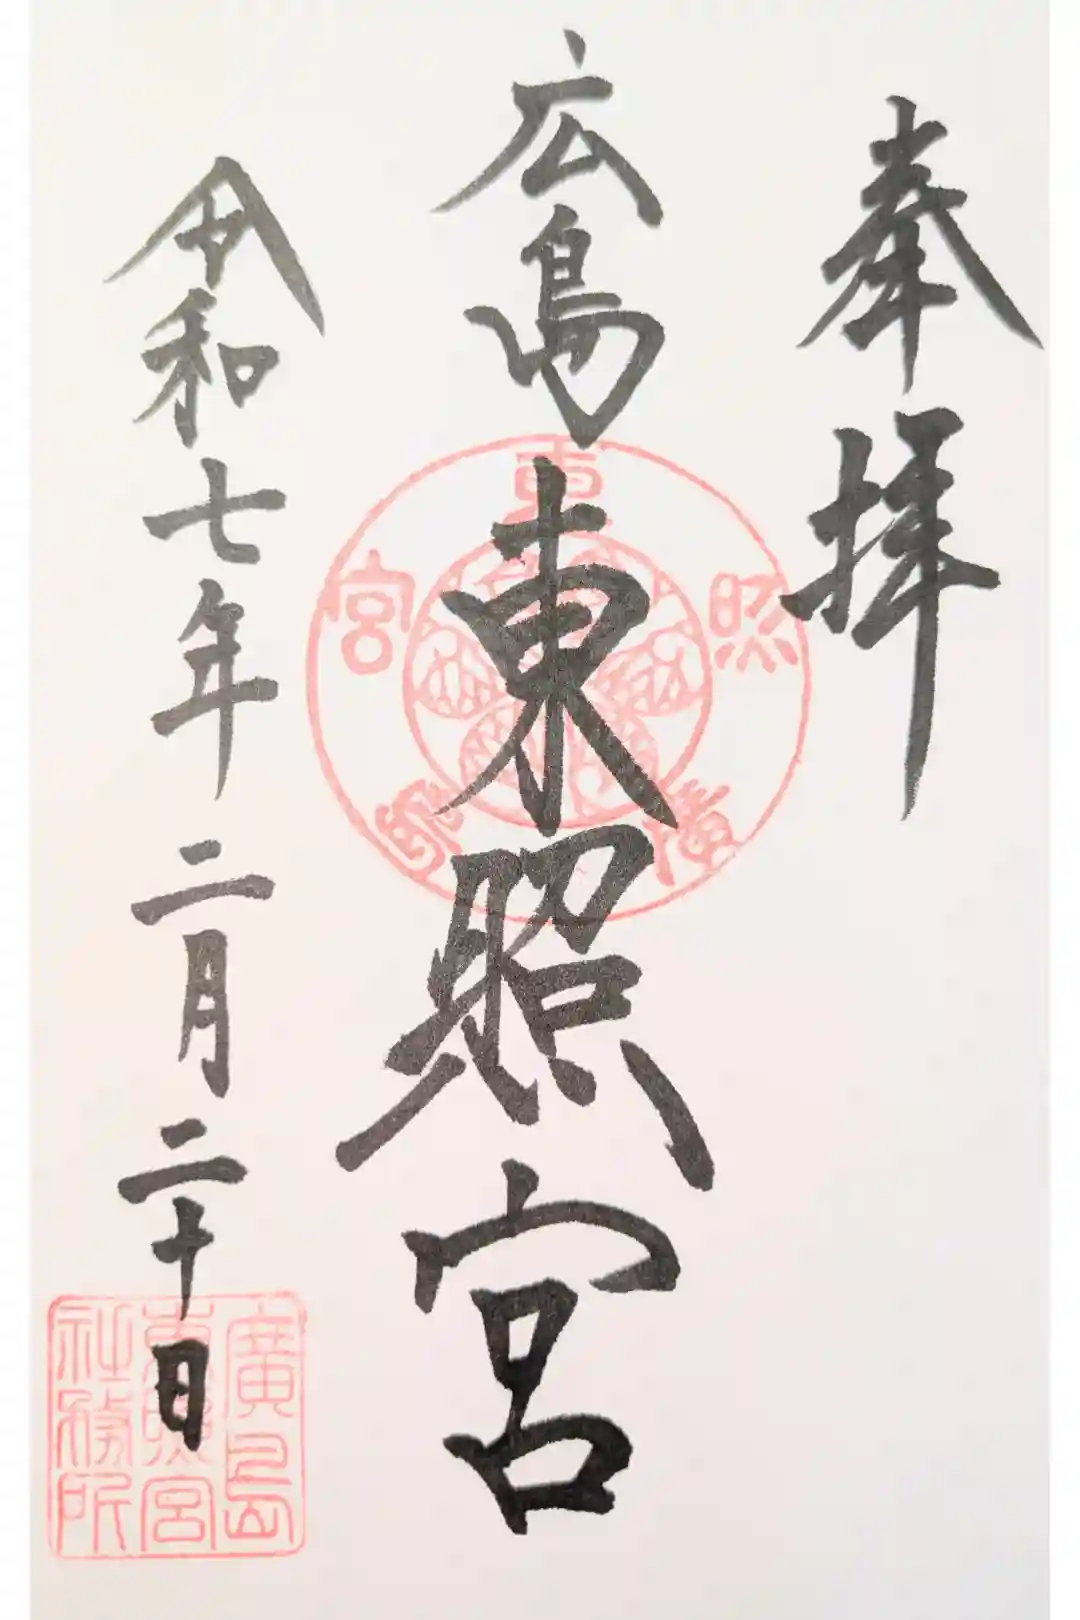 奉拝
広島東照宮
令和七年二月二十日
廣島東照宮
廣島
東照宮
社務所